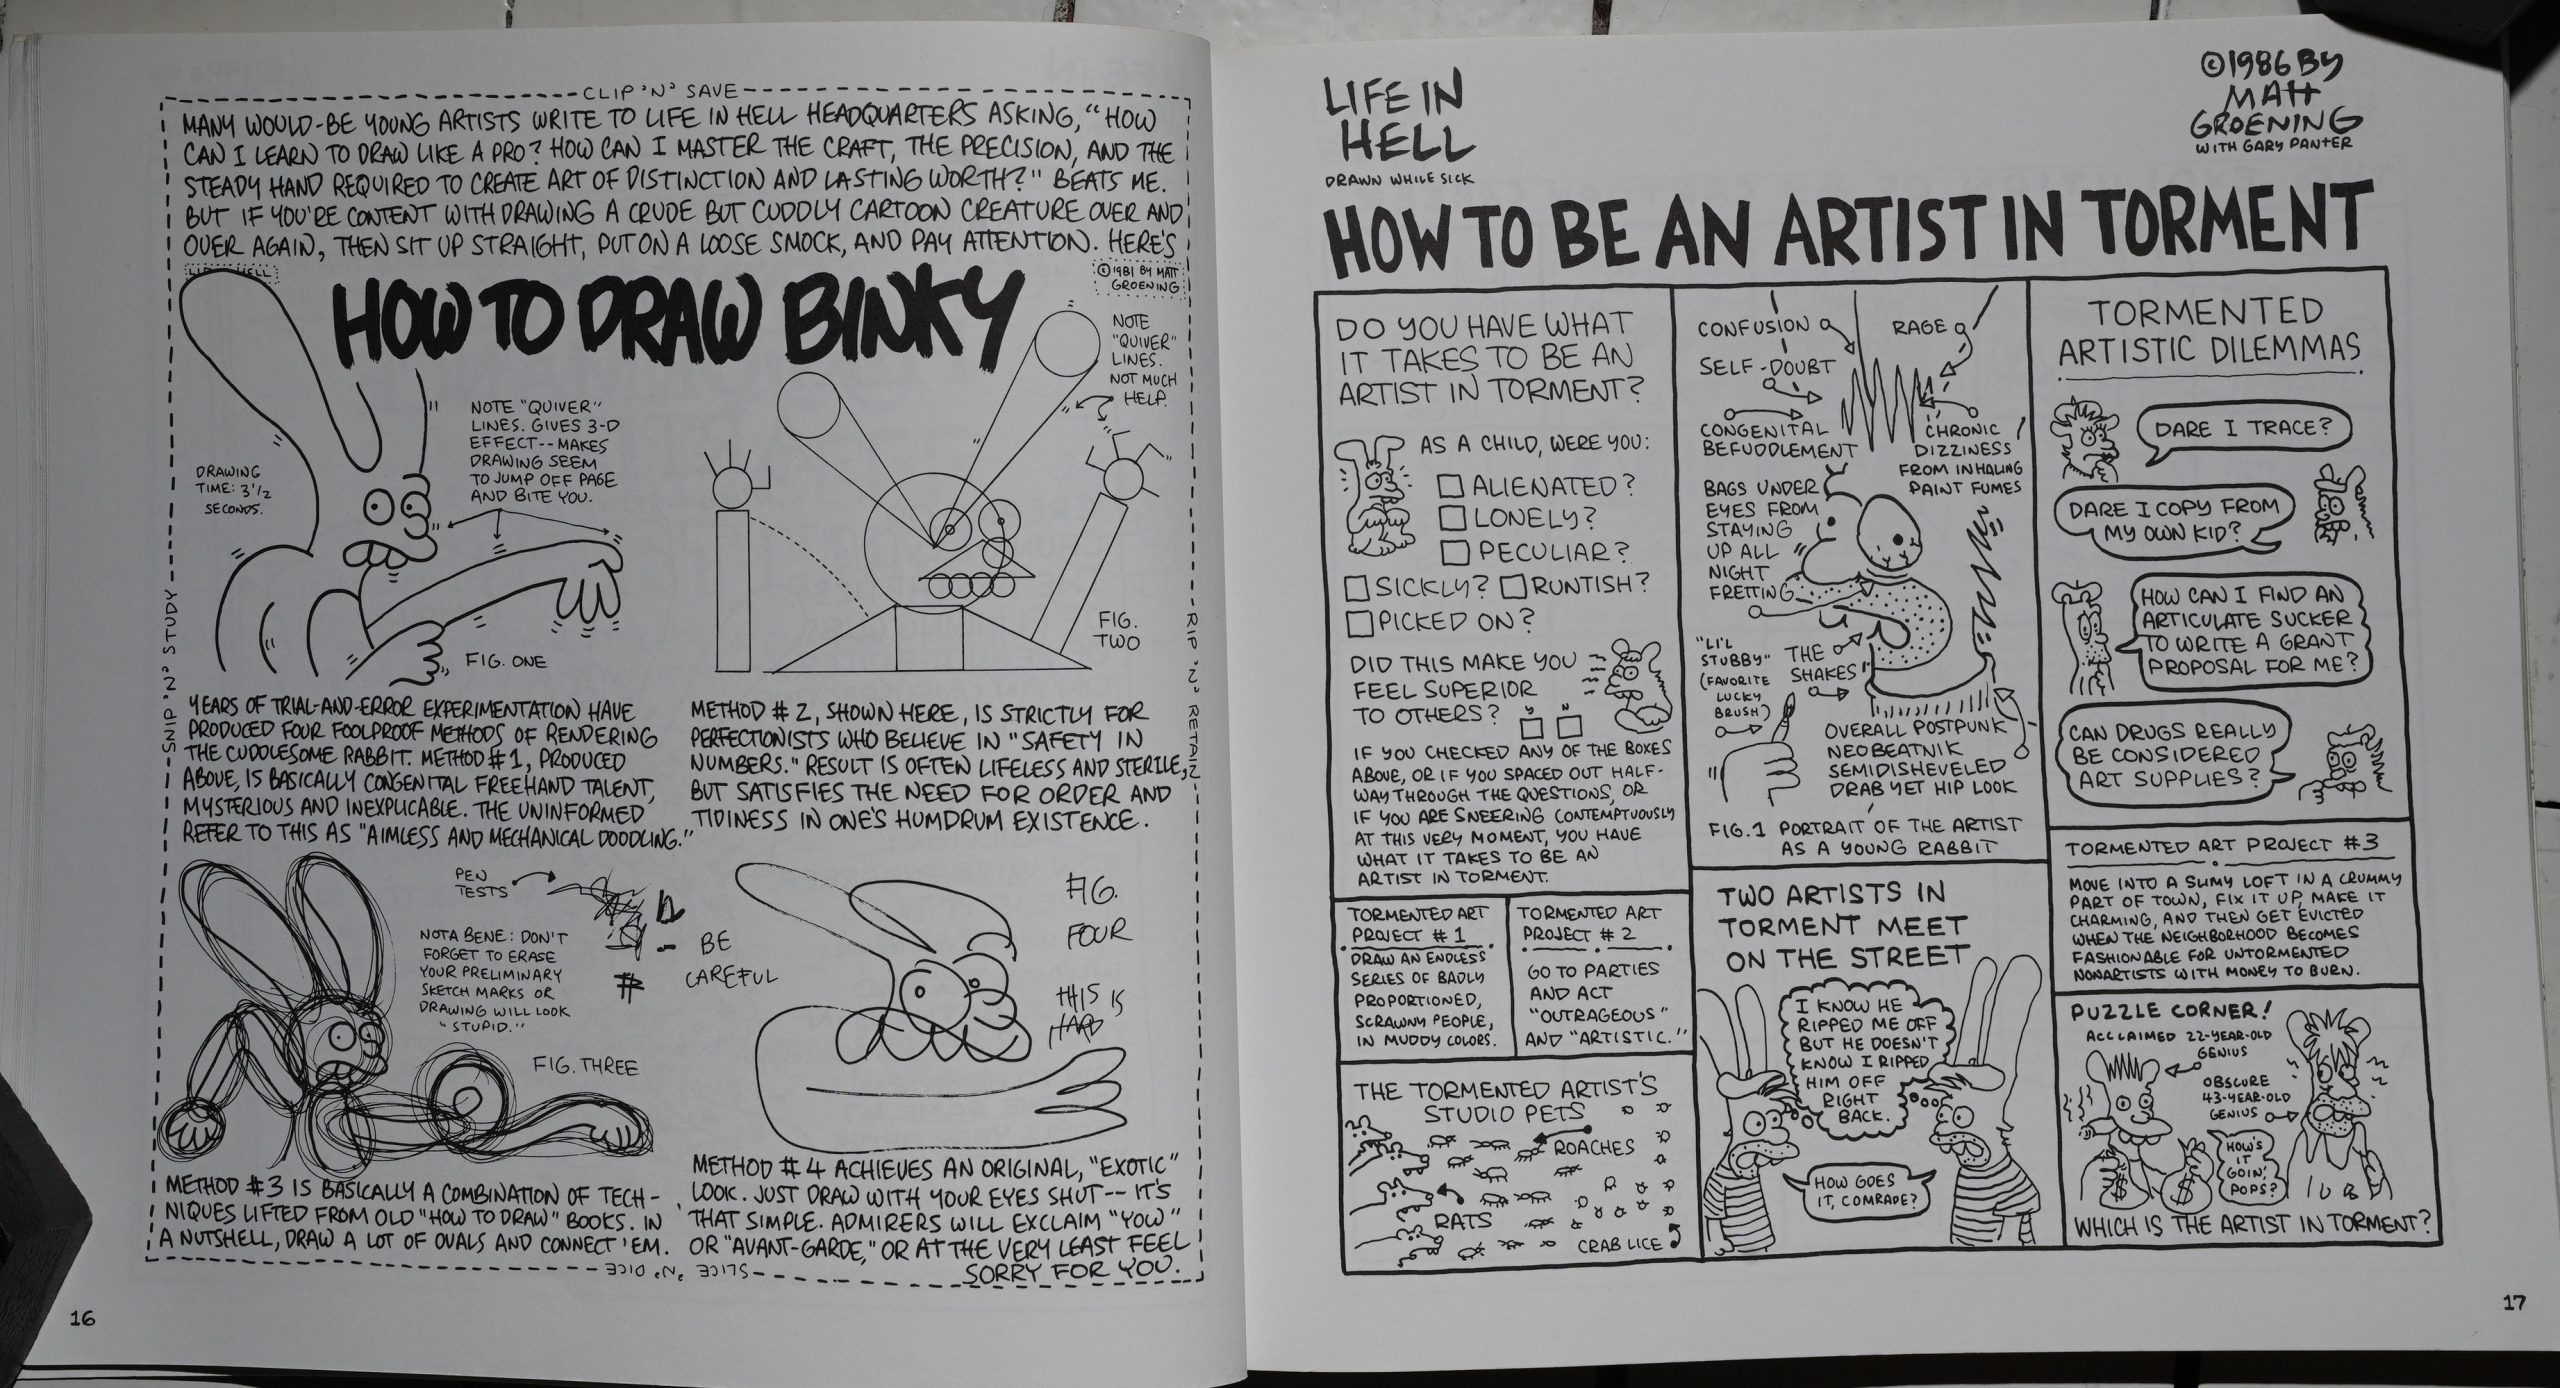 CLIP 'N' SAVE
MANY WOULD-BE YOUNG ARTISTS WRITE TO LIFE IN HELL HEADQUARTERS ASKING, "HOW
CAN I LEARN TO DRAW LIKE A PRO? HOW CAN I MASTER THE CRAFT, THE PRECISION, AND THE
STEADY HAND REQUIRED TO CREATE ART OF DISTINCTION AND LASTING WORTH?" BEATS ME.
BUT IF YOU'RE CONTENT WITH DRAWING A CRUDE BUT CUDDLY CARTOON CREATURE OVER AND
OVER AGAIN, THEN SIT UP STRAIGHT, PUT ON A LOOSE SMOCK, AND PAY ATTENTION. HERE'S
HELL
©1981 BY MATT
GROENING
HOW TO DRAW BINKY
DRAWING
TIME: 3 1/2
SECONDS.
NOTE "QUIVER"
LINES. GIVES 3-D
EFFECT--MAKES
DRAWING SEEM
TO JUMP OFF PAGE
AND BITE YOU.
FIG. ONE
NOTE
"QUIVER"
LINES.
NOT MUCH
HELP.
FIG.
TWO
SNIP 'N' STUDY
RIP 'N' RETAIN
YEARS OF TRIAL-AND-ERROR EXPERIMENTATION HAVE
PRODUCED FOUR FOOLPROOF METHODS OF RENDERING
THE CUDDLESOME RABBIT. METHOD #1, PRODUCED
ABOVE, IS BASICALLY CONGENITAL FREEHAND TALENT,
MYSTERIOUS AND INEXPLICABLE. THE UNINFORMED
REFER TO THIS AS "AIMLESS AND MECHANICAL DOODLING."
METHOD #2, SHOWN HERE, IS STRICTLY FOR
PERFECTIONISTS WHO BELIEVE IN "SAFETY IN
NUMBERS." RESULT IS OFTEN LIFELESS AND STERILE,
BUT SATISFIES THE NEED FOR ORDER AND
TIDINESS IN ONE'S HUMDRUM EXISTENCE.
PEN
TESTS
NOTA BENE: DON'T
FORGET TO ERASE
YOUR PRELIMINARY
SKETCH MARKS OR
DRAWING WILL LOOK
"STUPID."
BE
CAREFUL
FIG. THREE
FIG.
FOUR
THIS IS
HARD
METHOD #3 IS BASICALLY A COMBINATION OF TECH-
NIQUES LIFTED FROM OLD "HOW TO DRAW" BOOKS. IN
A NUTSHELL, DRAW A LOT OF OVALS AND CONNECT 'EM.
METHOD #4 ACHIEVES AN ORIGINAL, "EXOTIC"
LOOK. JUST DRAW WITH YOUR EYES SHUT--IT'S
THAT SIMPLE. ADMIRERS WILL EXCLAIM "YOW"
OR "AVANT-GARDE," OR AT THE VERY LEAST FEEL
SORRY FOR YOU.
SLICE 'N' DICE
16
LIFE IN
HELL
DRAWN WHILE SICK
©1986 BY
MATT
GROENING
WITH GARY PANTER
HOW TO BE AN ARTIST IN TORMENT
DO YOU HAVE WHAT
IT TAKES TO BE AN
ARTIST IN TORMENT?
AS A CHILD, WERE YOU:
ALIENATED?
LONELY?
PECULIAR?
SICKLY? RUNTISH?
PICKED ON?
DID THIS MAKE YOU
FEEL SUPERIOR
TO OTHERS?
Y N
IF YOU CHECKED ANY OF THE BOXES
ABOVE, OR IF YOU SPACED OUT HALF-
WAY THROUGH THE QUESTIONS, OR
IF YOU ARE SNEERING CONTEMPTUOUSLY
AT THIS VERY MOMENT, YOU HAVE
WHAT IT TAKES TO BE AN
ARTIST IN TORMENT.
CONFUSION
SELF-DOUBT
CONGENITAL
BEFUDDLEMENT
RAGE
CHRONIC
DIZZINESS
FROM INHALING
PAINT FUMES
BAGS UNDER
EYES FROM
STAYING
UP ALL
NIGHT
FRETTING
"LI'L
STUBBY"
(FAVORITE
LUCKY
BRUSH)
THE
SHAKES
OVERALL POSTPUNK
NEOBEATNIK
SEMIDISHEVELED
DRAB YET HIP LOOK
FIG. 1 PORTRAIT OF THE ARTIST
AS A YOUNG RABBIT
TORMENTED
ARTISTIC DILEMMAS
DARE I TRACE?
DARE I COPY FROM
MY OWN KID?
HOW CAN I FIND AN
ARTICULATE SUCKER
TO WRITE A GRANT
PROPOSAL FOR ME?
CAN DRUGS REALLY
BE CONSIDERED
ART SUPPLIES?
TORMENTED ART
PROJECT #1
DRAW AN ENDLESS
SERIES OF BADLY
PROPORTIONED,
SCRAWNY PEOPLE,
IN MUDDY COLORS.
TORMENTED ART
PROJECT #2
GO TO PARTIES
AND ACT
"OUTRAGEOUS"
AND "ARTISTIC."
THE TORMENTED ARTIST'S
STUDIO PETS
ROACHES
RATS
CRAB LICE
TWO ARTISTS IN
TORMENT MEET
ON THE STREET
I KNOW HE
RIPPED ME OFF
BUT HE DOESN'T
KNOW I RIPPED
HIM OFF
RIGHT
BACK.
HOW GOES
IT, COMRADE?
TORMENTED ART PROJECT #3
MOVE INTO A SLIMY LOFT IN A CRUMMY
PART OF TOWN, FIX IT UP, MAKE IT
CHARMING, AND THEN GET EVICTED
WHEN THE NEIGHBORHOOD BECOMES
FASHIONABLE FOR UNTORMENTED
NONARTISTS WITH MONEY TO BURN.
PUZZLE CORNER!
ACCLAIMED 22-YEAR-OLD
GENIUS
OBSCURE
43-YEAR-OLD
GENIUS
$ $
HOW'S
IT
GOIN',
POPS?
WHICH IS THE ARTIST IN TORMENT?
17